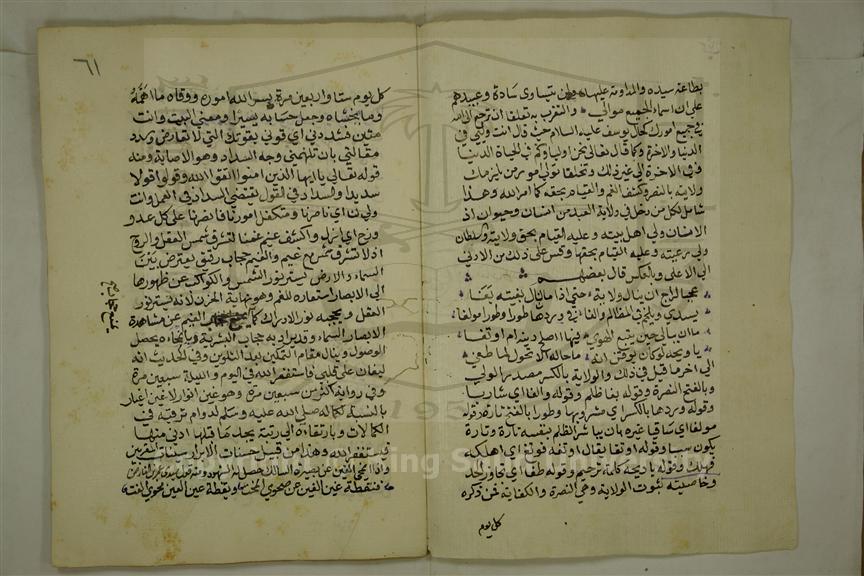 بطاعة سيده والمداومة عليها ولن يتساوى سادة وعبيدهم
على ان اسماء الجميع موالي والتقرب به تعلقا ان ترجع الى الله
في جميع امورك كحال يوسف عليه السلام حيث قال انت وليي في
الدنيا والاخرة وكما قال تعالى نحن اولياؤكم في الحياة الدنيا
وفي الاخرة الى غير ذلك وتخلقا تولى مومن من يلزمك
ولايته بالنصرة وكشف الغم والقيام بحقه كما امر الله وهذا
شامل لكل من دخل في ولاية العبد من انسان وحيوان اذ
الانسان ولي اهل بيته وعليه القيام بحق ولايته والسلطان
ولي رعيته وعليه القيام بحقها وقس على ذلك من الادنى
الى الاعلى وبالعكس قال بعضهم
عجبا لراج ان ينال ولاية حتى اذا ما نال بغيته بغا
يسدي ويلحم في المظالم والغا في وردها طورا وطورا مولغا
ما ان يبالي حين يتبع الهوى فيها اصلح دينه ام اوتغا
يا ويحه لو كان يوقن انه ما حاله الا تحول لما طغى
الى اخر ما قيل في ذلك والولاية بالكسر مصدر المولى
وبالفتح النصرة وقوله بغا ظلم وقوله والغا اي شاربا
وقوله وردها بالكسر اي مشروبها وطورا بالفتح تارة قوله
مولغا اي ساقيا غيره بان يباشر الظلم بنفسه تارة وتارة
يكون سببا وقوله اوتغا يقال اوتغه فوتغ اي اهلكه
فهلك وقوله يا ويحه كلمة ترحم وقوله طغا اي تجاوز الحد
وخاصيته ثبوت الولاية وهي النصرة والكفاية فمن ذكره
كل يوم
٦١
كل يوم ستا واربعين مرة يسر الله اموره ووقاه ما اهمه
وما يخشاه وجعل حسابه يسيرا ومعنى البيت وانت
متين فشددني اي قوني بقوتك التي لا تعارض وسدد
مقالتي بان تلهمني وجه السداد وهو الاصابة ومنه
قوله تعالى يا ايها الذين امنوا اتقوا الله وقولوا قولا
سديدا والسداد في القول يقتضي السداد في العمل وانت
ولي نا اي ناصرنا ومتكفل امورنا فانصرنا على كل عدو
وزح اي ازل واكشف غيم غمنا لتشرق شمس العقل والروح
اذ لا تشرق شمس مع غيم والغيم حجاب رقيق يعترض بين
السماء والارض يستر نور الشمس والكواكب عن ظهورها
الى الابصار استعاره للغم وهو نهاية الحزن لانه يستر نور
العقل ويحجبه نور الادراك كما يمنع الغيم عن مشاهدة
يمنع حجاب صح
الابصار السماء وقد يراد به حجاب البشرية وبانجلاءه يحصل
الوصول وينال مقام التمكين بعد التلوين وفي الحديث انه
ليغان على قلبي فاستغفر الله في اليوم والليلة سبعين مرة
وفي رواية اكثر من سبعين مرة وهو غين انوار لا غين اغيار
بالنسبة لكماله صلى الله عليه وسلم لدوام ترقيه في
الكمالات وبارتقاءه الى رتبة يجد ما قبلها ادنى منها
فيستغفر الله وهذا من قبيل حسنات الابرار سيئات المقربين
واذا انمحى الغين عن بصيرة السالك حصل له الشهود
فنقطة عين الغين عن صحوي انمحت ويقظة عين العين محوي الغت